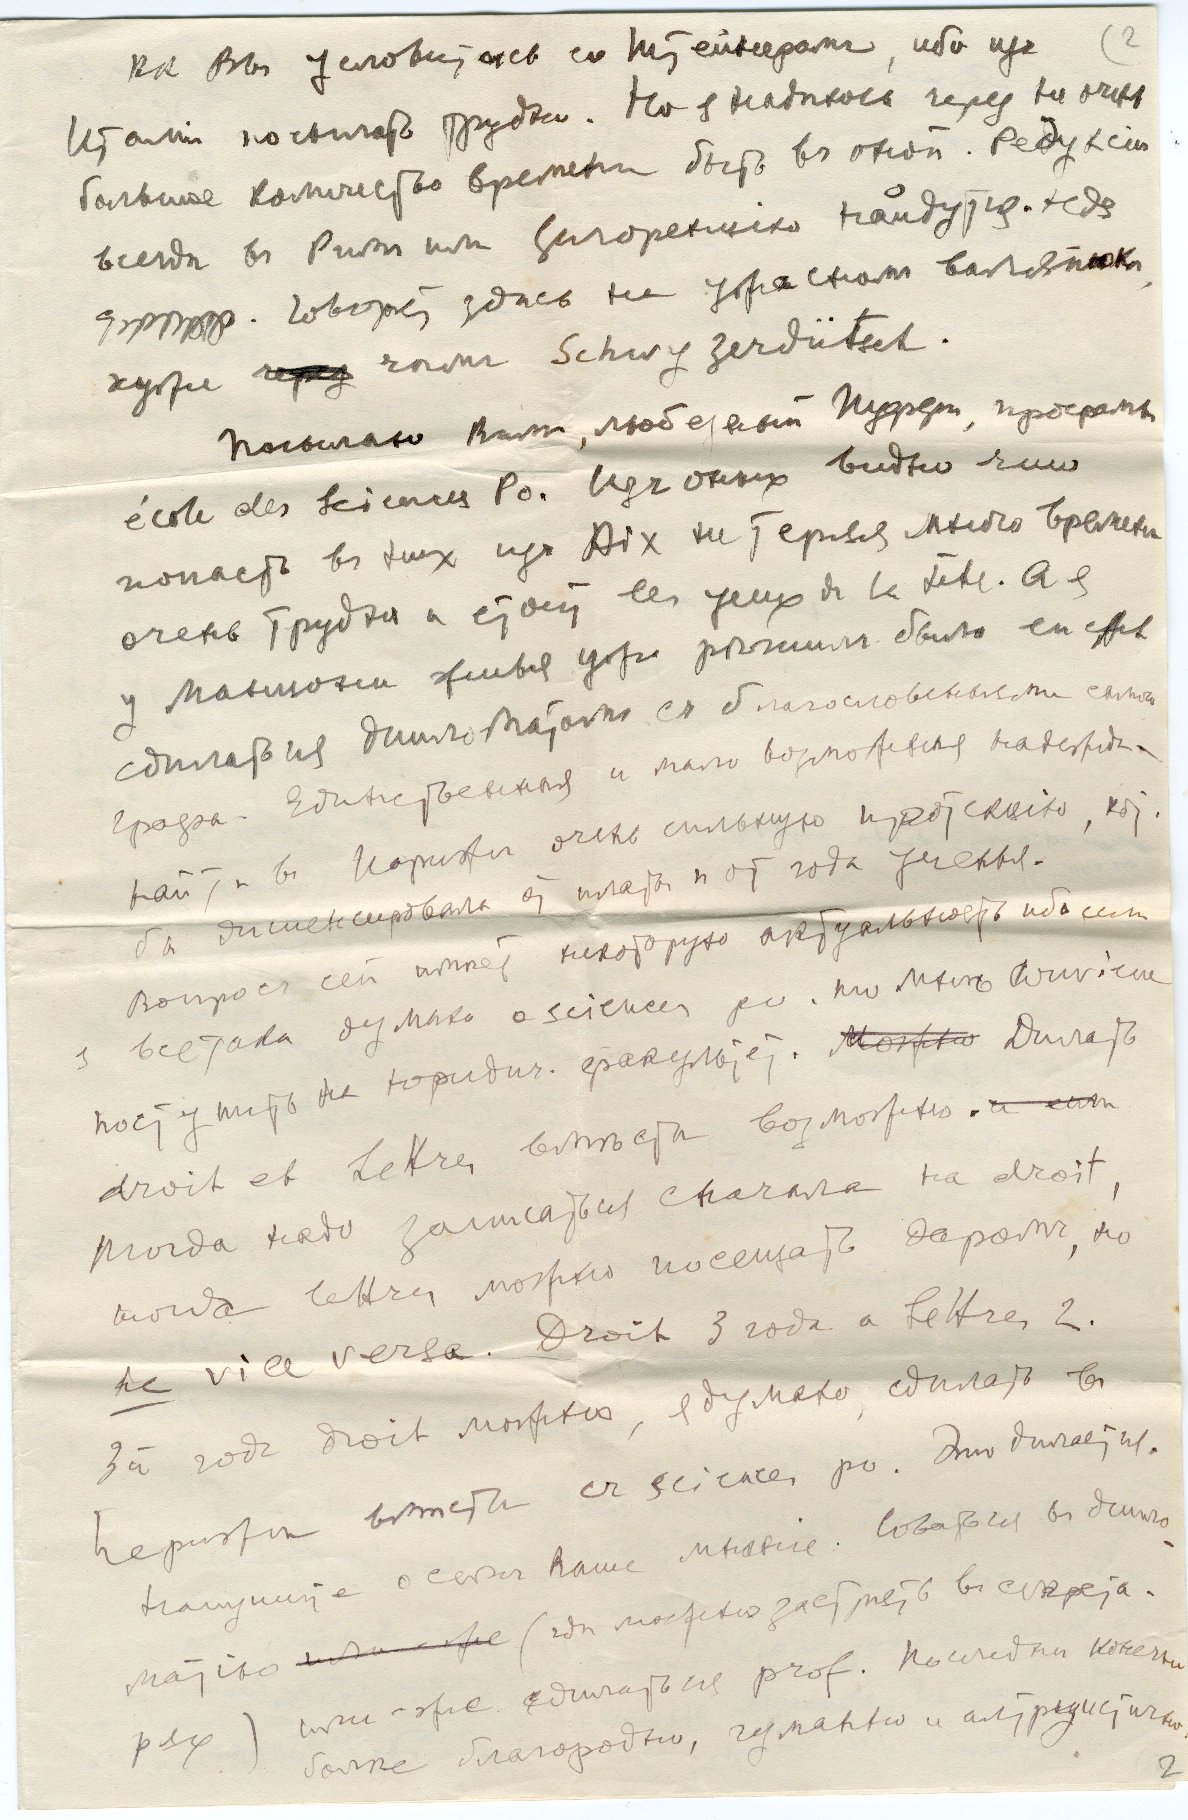 (2
кк Вы условитесь со Штейнерами, ибо изъ
Италiи посылать трудно. Но я надеюсь через не очень
большое количество времени быть въ оной. Редукцiи
всегда въ Римъ или Флоренцiю найдутся.
Говорят здесь на ужасном
хуже чѣмъ Schwyzerdütsch.
Посылаю Вамъ, любезный программы
école des Sciences Po. Изъ оныхъ видно что
попасть въ них изъ Aix не теряя много времени
очень трудно и стоит les yeux de la tête. А я
у живя уже было en effet
сдѣлаться дипломатомъ съ благословенiями самого
графа. Единственная и мало возможная надежда-
найти въ Парижѣ очень сильную протекцiю, кот.
бы диспенсировала от платы и от года ученья.
Вопросъ сей имѣет некоторую актуальность ибо если
я всетаки думаю о sciences po. то мнѣ convient
поступить на юридич. факультет. Можно Дѣлать
droit et Lettres вмѣстѣ возможно. и если
тогда надо записаться сначала на droit,
тогда lettres можно посещать даромъ, но
не vice versa. Droit 3 года а Lettres 2.
3й годъ droit можно, я думаю, сдѣлать въ
Парижѣ вмѣстѣ съ sciences po. Это дѣлается.
Напишите о семъ Ваше мнѣнiе. Соваться въ дипло-
матiю или же (гдѣ можно застрять въ секрета-
ряхъ) или-же сдѣлаться prof. Последнее конечно
болѣе благородно, гуманно и альтруистично,
2